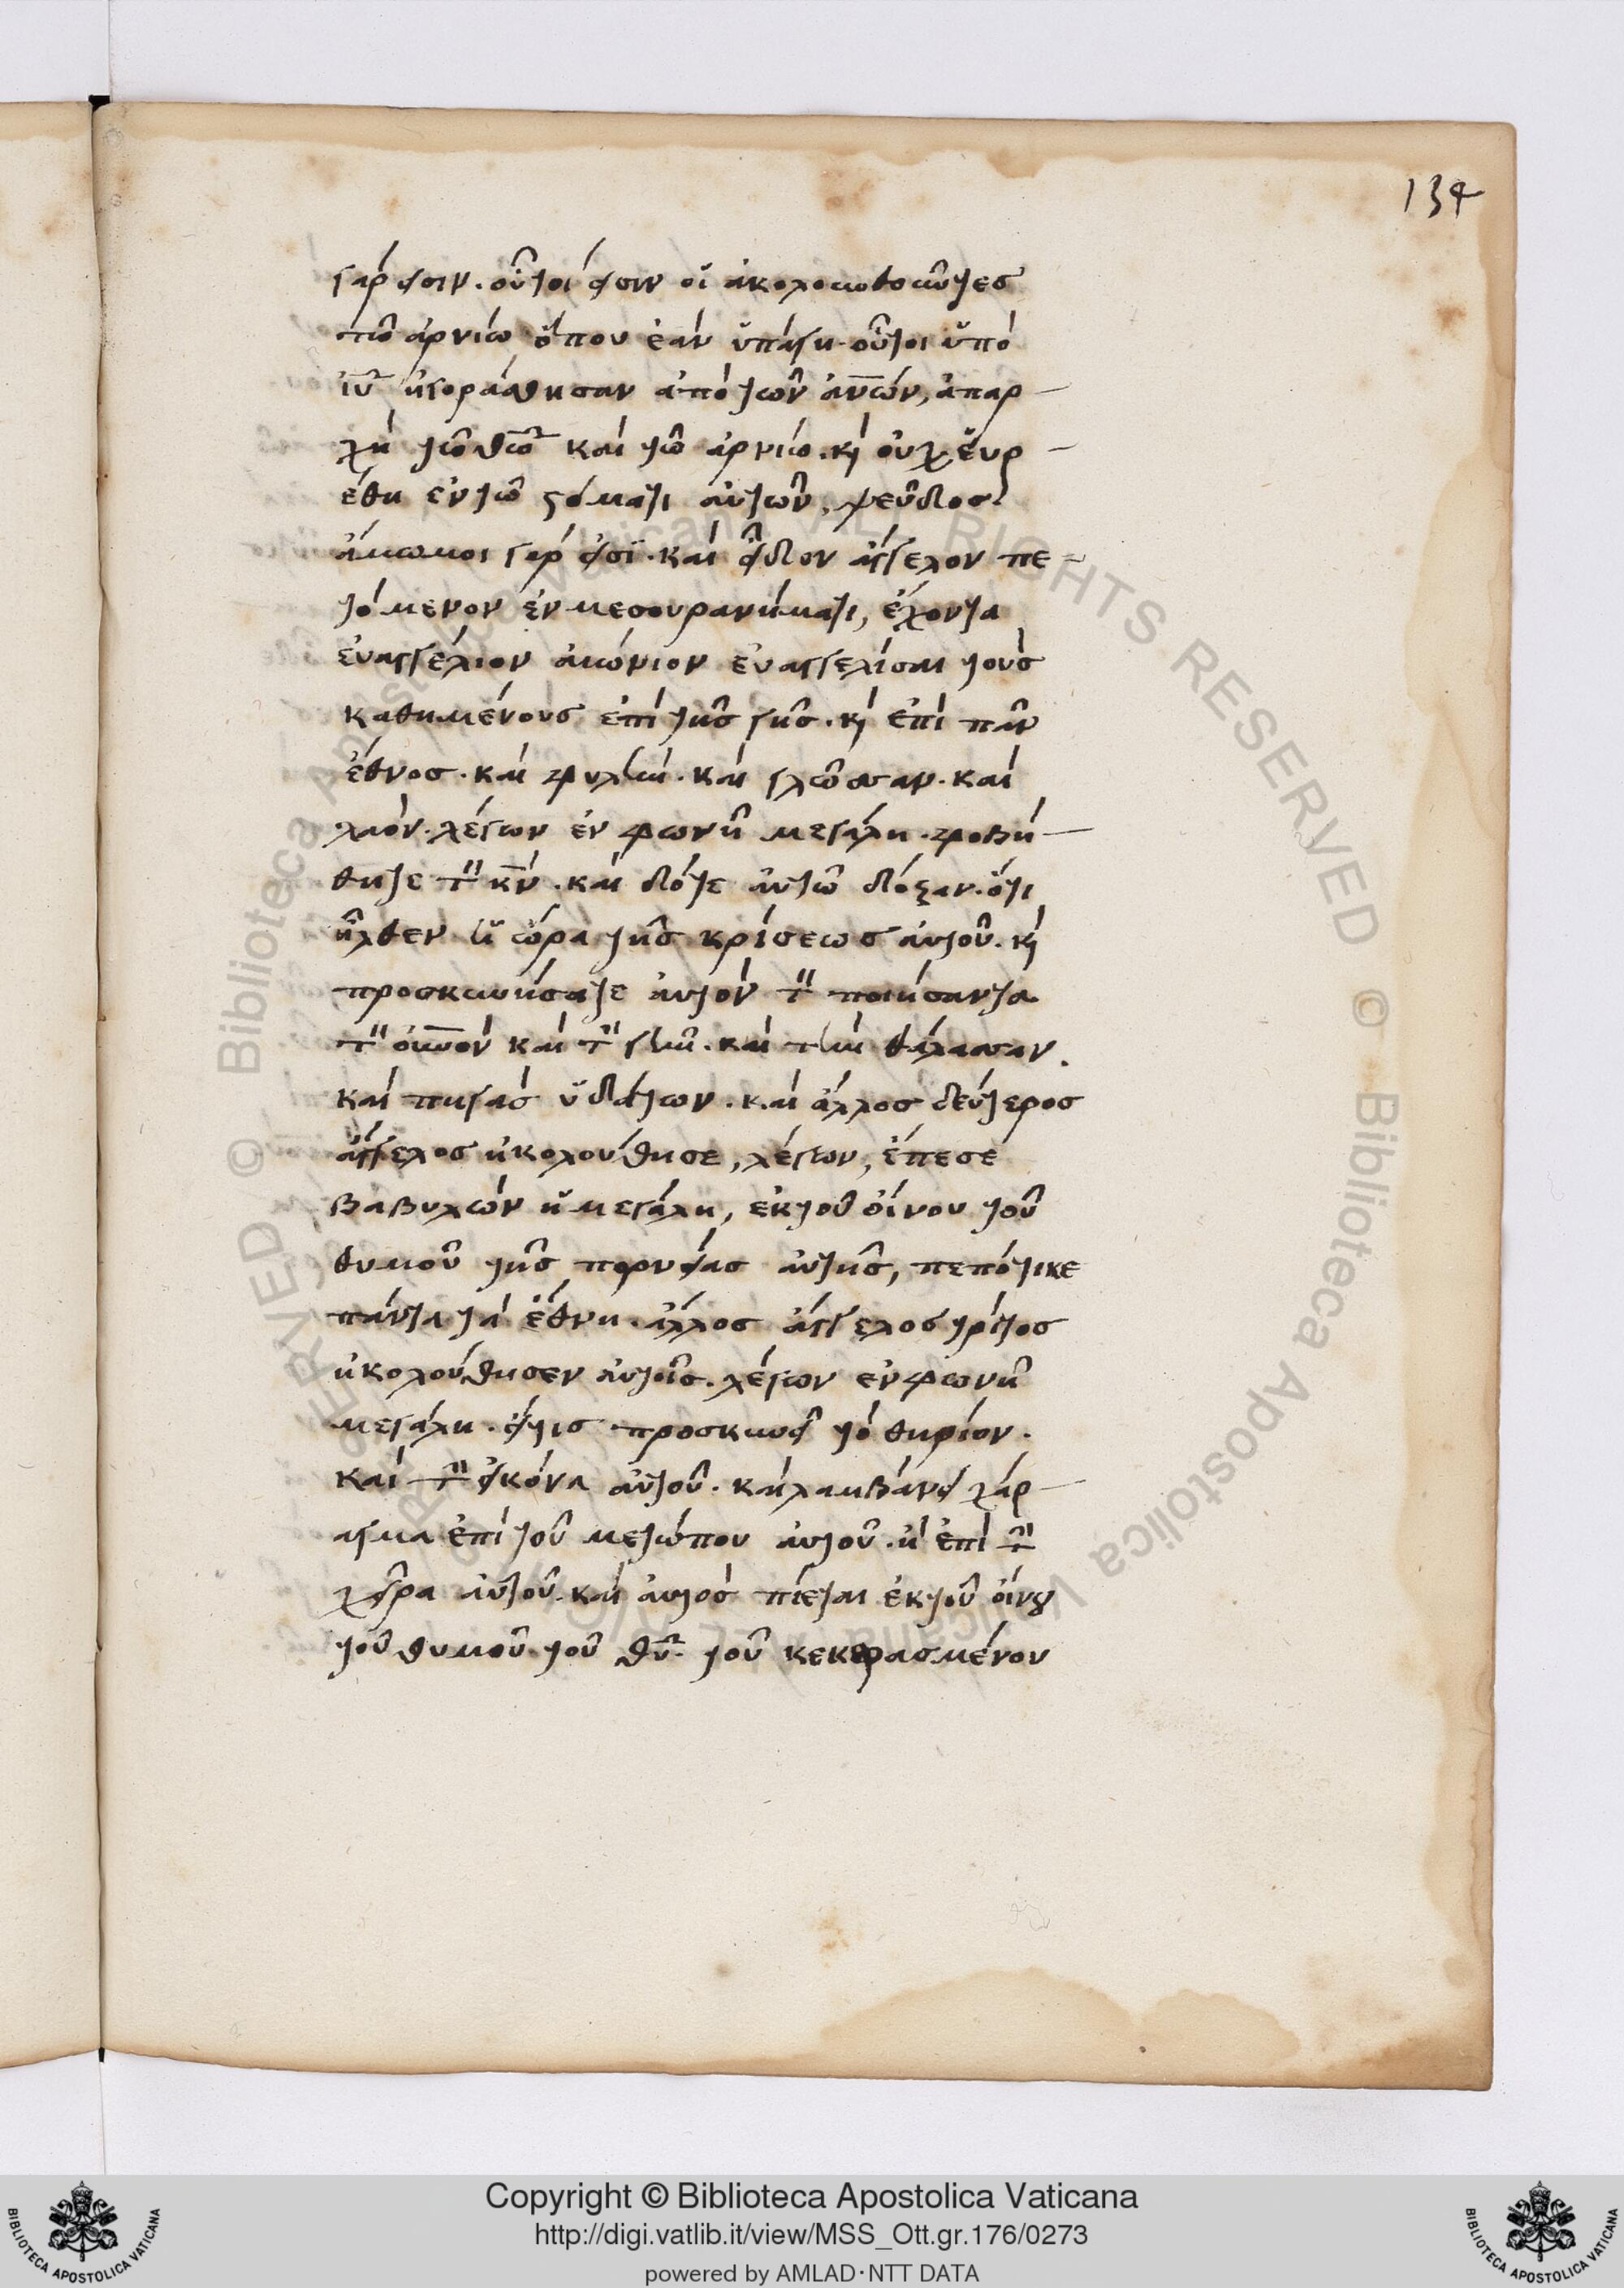 134
γάρ εἰσιν. οὗτοί εἰσιν οἱ ἀκολουωθοῦντες
τῶ ἀρνίω ὅπου ἐὰν ὑπάγη. οὗτοι ὑπὸ
ἰῦ ἠγοράσθησαν ἀπὸ τῶν ἀνῶν, ἀπαρ
χὴ τῶ θῶ καὶ τῶ ἀρνίω. κὶ οὐχ ἑυρ
έθη ἐν τῶ ϛόματι ἀυτῶν, ψεῦδος
ἄμωμοι γάρ εἰσϊ. καὶ εἶδον ἄγγελον πε
τόμενον ἐν μεσουρανήματι, ἔχοντα
ἐυαγγέλιον αἰώνιον ἐυαγγελίσαι τοὺς
καθημένους ἐπὶ τῆς γῆς. κὶ ἐπὶ πᾶν
ἔθνος. καὶ φυλὴν. καὶ γλῶσσαν. καὶ
λαόν. λέγων ἐν φωνῆ μεγάλη. φοβή
θητε τ̀ κν̄. καὶ δότε ἀυτῶ δόξαν. ὅτι
ἦλθεν ἡ ὥρα τῆς κρίσεως ἀυτοῦ. κὶ
προσκυνήσατε ἀυτὸν τ̀ ποιήσαντα
τ̀ οὐνον καὶ τ̀ γῆν. καὶ τὴν θάλασσαν.
καὶ πηγὰς ὑδάτων. καὶ ἄλλος δεύτερος
ἄγγελος ἠκολούθησε, λέγων, ἔπεσε
βαβυλὼν ἡ μεγάλη, ἐκ τοῦ οἴνου τοῦ
θυμοῦ τῆς πορνείας ἀυτῆς, πεπότικε
πάντα τὰ ἔθνη. ἄλλος ἄγγελος τρίτος
ἠκολούθησεν ἀυτοῖς. λέγων ἐν φωνῆ
μεγάλη. εἴτις προσκυνεῖ τὸ θηρίον.
καὶ τ̀ εἰκόνα ἀυτοῦ. καὶ λαμβάνει χάρ
αγμα ἐπὶ τοῦ μετώπου ἀυτοῦ. ἢ ἐπὶ τ̀
χεῖρα ἀυτοῦ. καὶ ἀυτὸς πίεται ἐκ τοῦ οἴνȣ
τοῦ θυμοῦ τοῦ θῦ. τοῦ κεκερασμένου
Copyright © Biblioteca Apostolica Vaticana
http://digi.vatlib.it/view/MSS_Ott.gr.176/0273
powered by AMLAD·NTT DATA
BIBLIOTECA APOSTOLICA VATICANA
BIBLIOTECA APOSTOLICA VATICANA